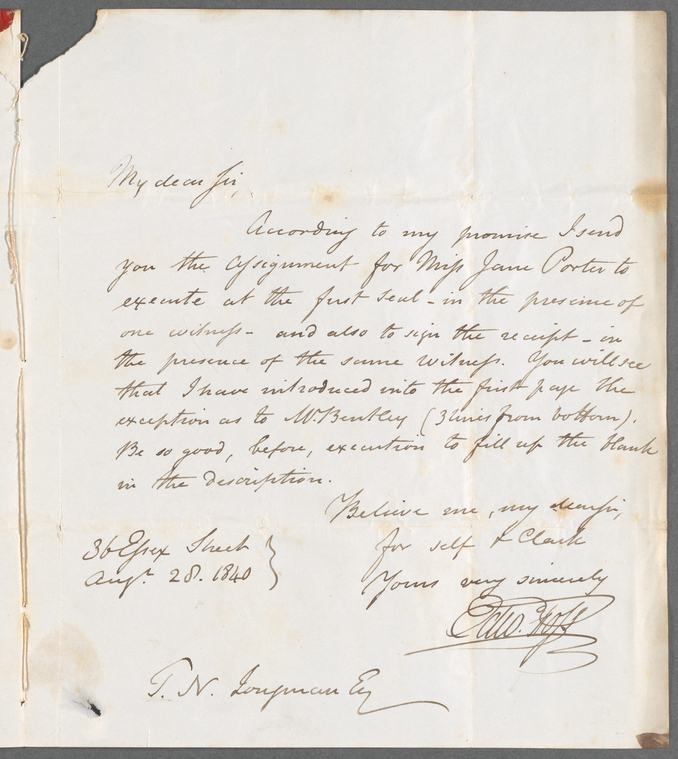 My dear Sir,
According to my promise I send
you the assignment for Miss Jane Porter to
execute at the first seal - in the presence of
one witness - and also to sign the receipt - in
the presence of the same witness. You will see
that I have introduced into the first page the
exception as to Mr. Bentley (3 lines from bottom).
Be so good, before, execution to fill up the blank
in the description.
Believe me, my dear Sir,
for self & Clark
Yours very sincerely
Edw.
36 Essex Street
Augt. 28. 1840
T. N. Longman Esq